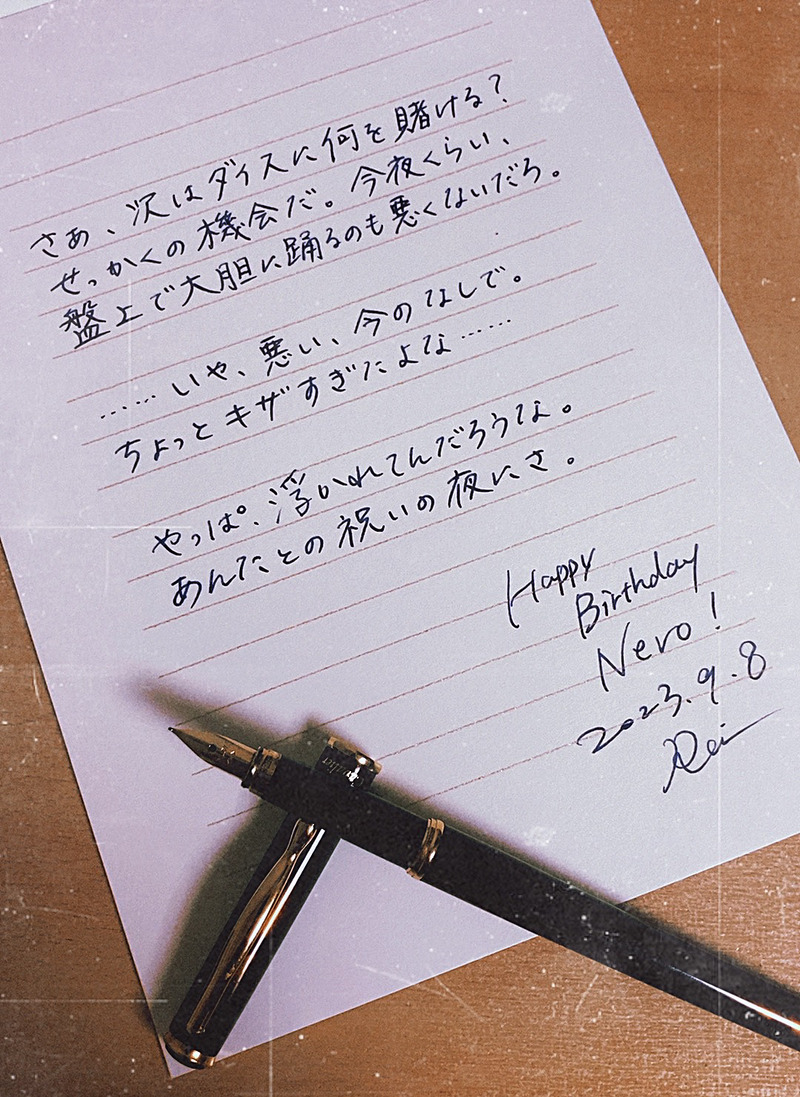 さあ、次はダイスに何を賭ける？
せっかくの機会だ。今夜くらい、
盤上で大胆に踊るのも悪くないだろ。
……いや、悪い、今のなしで。
ちょっとキザすぎたよな……
やっぱ、浮かれてんだろうな。
あんたとの祝いの夜にさ。
Happy
Birthday
Nero!
2023.9.8
Rei